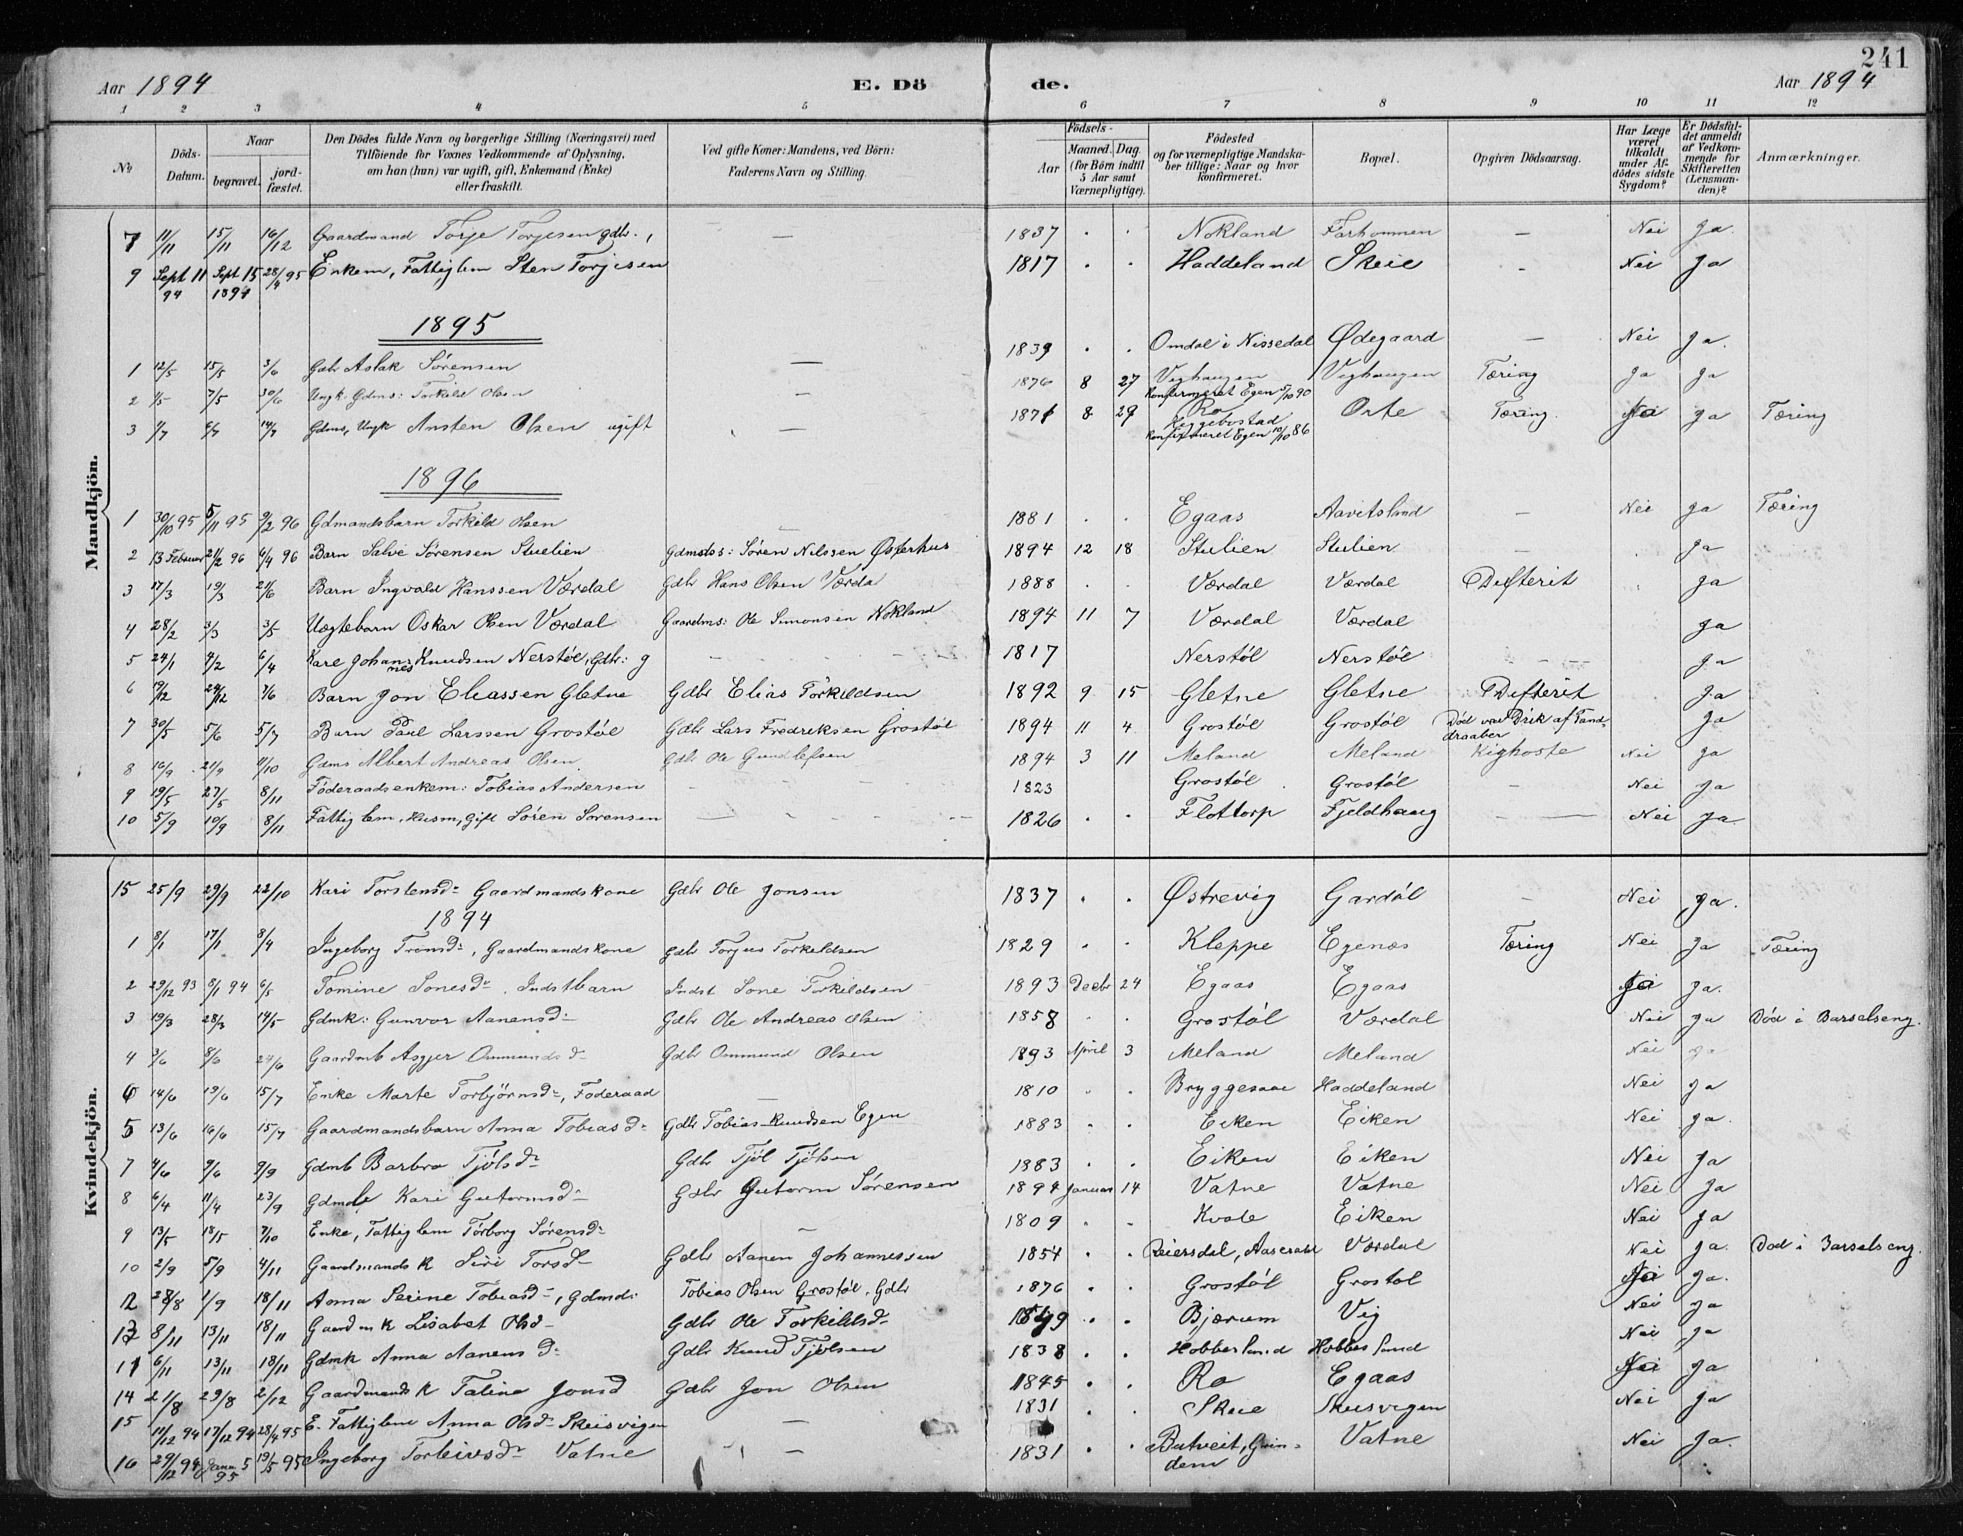 241
Aar 1894 E. Dö de. Aar 1894
1 2 3 4 5 6 7 8 9 10 11 12
No
Döds-Datum.
Naar begravet. jordfæstet.
Den Dödes fulde Navn og borgerlige Stilling (Næringsvei) med Tilföiende for Voxnes Vedkommende af Oplysning, om han (hun) var ugift, gift, Enkemand (Enke) eller fraskilt.
Ved gifte Koner: Mandens, ved Börn: Faderens Navn og Stilling.
Födsels- Aar Maaned. Dag. (for Börn indtil 5 Aar samt Værnepligtige).
Födested og for værnepligtige Mandskaber tillige: Naar og hvor konfirmeret.
Bopæl.
Opgiven Dödsaarsag.
Har Læge været tilkaldt under Afdödes sidste Sygdom?
Er Dödsfaldet anmeldt af Vedkommende for Skifteretten (Lensmanden)?
Anmærkninger.
Mandkjön.
7 11/11 15/11 16/12 Gaardmand Torje Torjesen gdbr., — 1837 . . Nokland Farhommen — Nei Ja.
9 Sept 11 94 Sept 15 1894 28/4 95 Enkem, Fattiglem Sten Torjesen 1817 . . Haddeland Skeie - Nei Ja
1895
1 12/5 15/5 3/6 Gdbr Aslak Sørensen — 1839 . . Omdal i Nissedal Ødegaard — Nei Ja.
2 1/5 7/5 30/6 Ungk. Gdms: Torkild Olsen — 1876 8 27 Veghaugen Konfirmeret Egen 5/10 90 Veghaugen Tæring Ja Ja
3 1/7 6/7 14/7 Gdms, Ungk Ansten Olsen ugift — 1871 8 29 Ro Heggebostad Konfirmeret Egen 10/10 86 Orte Tæring. Ja Ja Tæring
1896
1 30/10 95 5/11 95 9/2 96 Gdmandsbarn Torkild Olsen — 1881 . . Egaas Aavitsland — Nei Ja Tæring
2 13 Februar 21/2 96 6/4 96 Barn Salve Sørensen Stulien Gdmds: Søren Nilssen Østerhus 1894 12 18 Stulien Stulien — Ja
3 17/3 19/3 21/6 Barn Ingvald Hanssen Værdal Gdbr Hans Olsen Værda 1888 . . Værdal Værdal Difterit Ja
4 28/2 3/3 3/5 Uægtebarn Oskar Olsen Værdal Gaardms: Ole Simonsen Nokland 1894 11 7 Værdal Værdal Ja
5 24/1 4/2 6/4 Kare Johannes Knudsen Nerstøl, Gdbr: g 1817 Nerstøl Nerstøl Ja
6 19/12 24/12 7/6 Barn Jon Eliassen Gletne Gdbr Elias Torkildsen 1892 9 15 Gletne Gletne Difterit Ja
7 30/5 5/6 5/7 Barn Paul Larssen Grostøl Gdbr Lars Fredriksen Grostøl 1894 11 4 Grostøl Grostøl Død ved Drik af Tanddraaber Ja
8 16/9 21/9 4/10 Gdms Albert Andreas Olsen Gdbr Ole Gundlefsen 1894 3 11 Meland Meland Kighoste Nei Ja
9 19/5 27/5 8/11 Føderaadsenkem: Tobias Andersen 1823 Grostøl Grostøl — Nei Ja
10 5/9 10/9 8/11 Fattiglem, Husm, Gift Søren Sørensen 1826 . . Flottorp Fjeldhaug — Nei Ja.
Kvindekjön.
15 25/9 29/9 22/10 Kari Torstensd: Gaardmandskone Gdbr Ole Jonsen 1837 . . Østrevig Gardøl — Nei Ja.
1894
1 8/1 17/1 8/4 Ingeborg Tronsd:, Gaardmandskone Gdbr Torjus Torkeldsen 1829 . . Kleppe Egenæs Tæring Nei Ja Tæring
2 29/12 93 8/1 94 6/5 Tomine Sonesd:. Indstbarn Indst Sone Torkildsen 1893 Decbr 24 Egaas Egaas Ja Ja.
3 19/3 28/3 14/5 Gdmk: Gunvor Aanensd: Gdbr Ole Andreas Olsen 1858 . . Grostøl Værdal Nei Ja Død i Barselseng.
4 3/6 8/6 24/6 Gaardmb Asgjer Ommundsd: Gdbr Ommund Olsen 1893 April 3 Meland Meland Nei Ja
6 14/6 19/6 15/7 Enke Marte Torbjørnsd:, Føderaad — 1810 . . Bryggesaae Haddeland Nei Ja
5 13/6 16/6 15/7 Gaardmandsbarn Anna Tobiasd: Gdbr Tobias Knudsen Egen 1883 . . Eiken Eiken Nei Ja.
7 4/6 9/6 9/9 Gdmb Barbro Tjølsd: Gdbr Tjøl Tjølsen 1883 . . Eiken Eiken Nei Ja
8 6/4 11/4 23/9 Gdmb Kari Gutormsd: Gdbr Gutorm Sørensen 1894 Januar 14 Vatne Vatne Nei Ja
9 13/5 18/5 7/10 Enke, Fattiglem Torborg Sørensd: — 1809 . - Kvale Eiken Nei Ja
10 2/9 5/9 4/11 Gaardmands K Siri Torsd: Gdbr Aanen Johannessen 1854 . . Reiersdal, Aaseral Værdal Nei Ja. Død i Barselseng.
12 28/8 1/9 18/11 Anna Serine Tobiasd:, Gdmd: Tobias Olsen Grostøl. Gdbr 1876 . . Grostøl Grostøl Ja Ja.
13 8/11 13/11 18/11 Gaardm K Lisabet Olsd: Gdbr Ole Torkildsd: 1849 . . Bjærum Vig Nei Ja
11 6/11 13/11 18/11 Gdmk Anna Aanensd: Gdbr Knud Tjølsen 1838 . . Hobbesland Hobbesland Nei Ja
14 21/8 29/8 2/12 Gaardmands K Taline Jonsd Gdbr Jon Olsen 1845 . . Ro Egaas Ja Ja
15 11/12 94 17/12 94 28/4 95 E. Fattiglem Anna Olsd: Skeisvigen — 1831 . Skeie Skeisvigen Nei Ja
16 29/12 94 Janu 5 95 19/5 95 Ingeborg Torleivsd: Vatne — 1831 . . Butveit, Grindem Vatne Nei Ja.